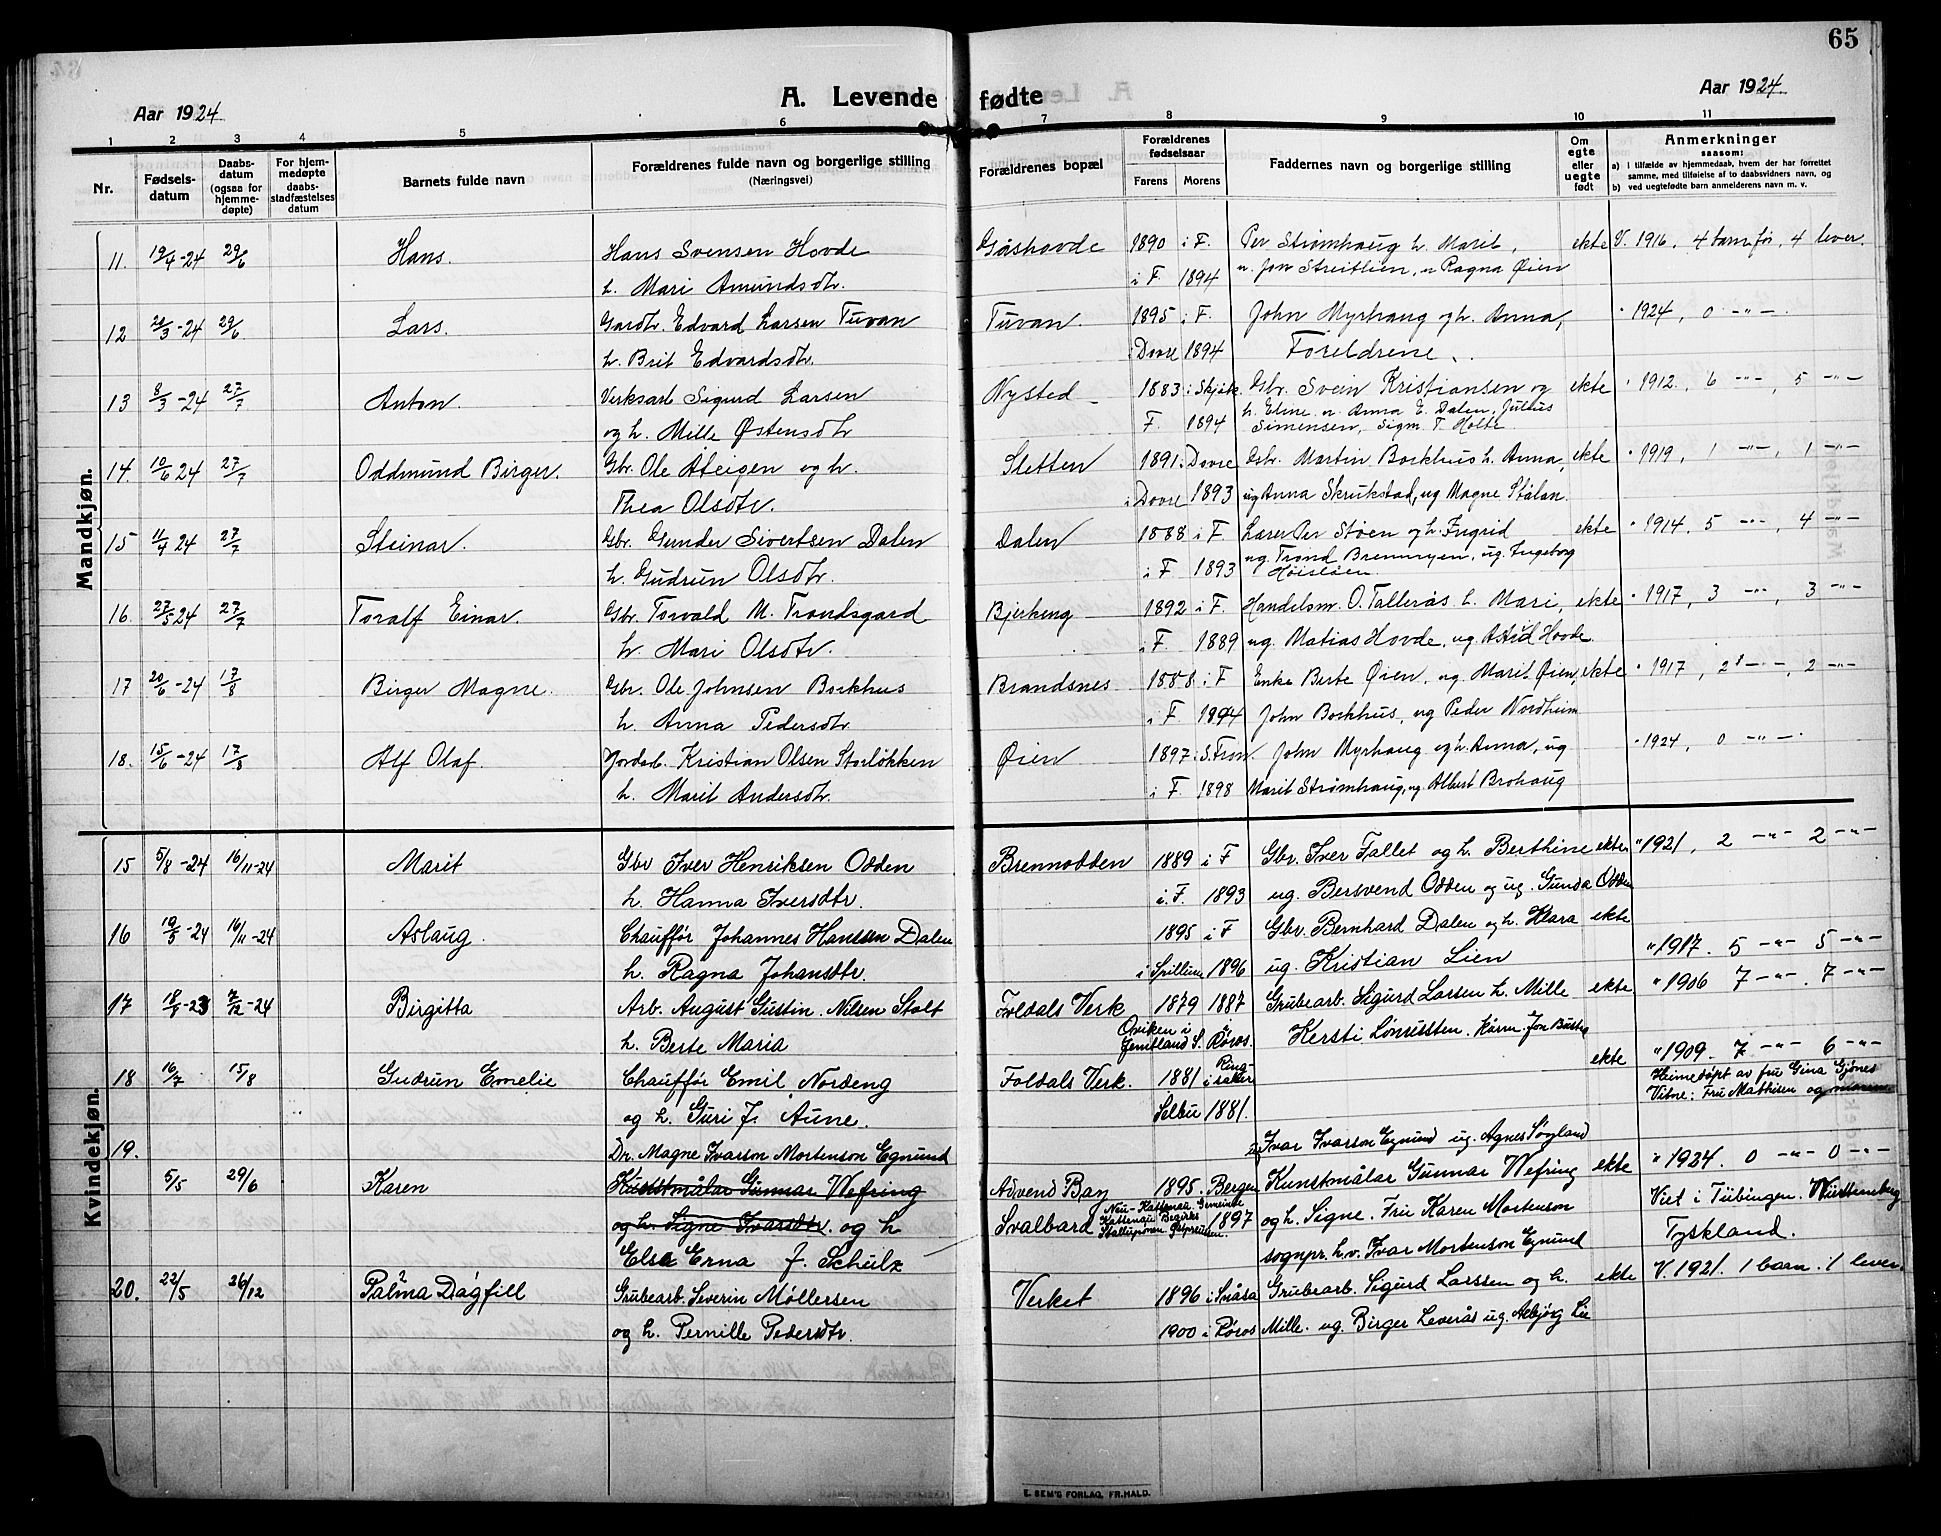 65
Aar 1924
A. Levende fødte
Aar 1924
1 2 3 4 5 6 7 8 9 10 11
Nr.
Fødsels-
datum
Daabs-
datum
(ogsaa for
hjemme-
døpte)
For hjem-
medøpte
daabs-
stadfæstelses
datum
Barnets fulde navn
Forældrenes fulde navn og borgerlige stilling
(Næringsvei)
Forældrenes bopæl
Forældrenes
fødselsaar
Farens Morens
Faddernes navn og borgerlige stilling
Om
egte
eller
uegte
født
Anmerkninger
saasom:
a) i tilfælde av hjemmedaab, hvem der har forrettet
samme, med tilføielse af to daabsvidners navn, og
b) ved uegtefødte barn anmelderens navn m. v.
Mandkjøn.
11. 19/4-24 29/6 Hans. Hans Svensen Hovde Gåshovde 1890 i F. Per Strømhaug h. Marit, ekte V. 1916, 4 barn før, 4 lever.
h. Mari Amundsdtr. i F 1894 u. Jon Streitlien, u Ragna Øien
12 21/3-24 29/6 Lars. Gardbr. Edvard Larsen Tuvan Tuvan. 1895 i F. John Myrhaug og h. Anna, " 1924, 0 -"-.
h. Brit Edvardsdtr. i Dovre 1894 Foreldrene.
13 8/3-24 27/7 Anton. Verksarb Sigurd Larsen Nysted 1883 i Skjåk Gbr. Svein Kristiansen og ekte " 1912, 6 -"-, 5 -"-
og h. Mille Østensdtr F. 1894 h. Eline u. Anna E. Dalen, Julius
Simensen, Sigm. T. Holte.
14. 10/6 24 27/7 Oddmund Birger. Gbr. Ole Ateigen og h. Sletten 1891 i Dovre Gbr. Martin Borkhus h. Anna, ekte " 1919, 1 -"-, 1 -"-
Thea Olsdtr. i Dovre 1893 ug Anna Skrukstad, ug Magne Stølan.
15 11/4 24 27/7 Steinar. Gbr. Gunder Sivertsen Dalen Dalen 1888 i F Lærer Per Støen og h. Ingrid ekte " 1914. 5 -"-, 4 -"-
h. Gudrun Olsdtr. i F 1893 ug. Trond Brennmyen, ug. Ingeborg
16. 27/5-24 27/7 Toralf Einar. Gbr. Torvald M. Trondsgard Bjerkeng 1892 i F. Handelsm. O. Tallerås h. Mari, ekte " 1917, 3 -"-, 3 -"-
h. Mari Olsdtr. i F. 1889 ug. Matias Hovde, ug. Astrid Hovde.
17 20/6-24 17/8 Birger Magne. Gbr. Ole Johnsen Borkhus Brandsnes 1888 i F Enke Berte Øien, ug. Marit Øien, ekte " 1917, 2 -"-, 2 -"-
h. Anna Pedersdtr i F. 1894 John Borkhus, ug Peder Nordheim
18. 15/6-24 17/8 Alf Olaf. Jordb. Kristian Olsen Storløkken Øien 1897 i S. Fron. John Myrhaug og h. Anna, ug " 1924, 0 -"-.
h. Marit Andersdtr. i F. 1898 Marit Strømhaug, ug. Albert Brohaug
Kvindekjøn.
15 5/8-24 16/11-24 Marit Gbr Iver Henriksen Odden Brennodden 1889 i F Gbr. Iver Fallet og h. Berthine ekte " 1921, 2 -"- 2 -"-
h. Hanna Iversdtr. i F. 1893 ug. Bersvend Odden og ug. Gunda Odden
16 19/5-24 16/11-24 Aslaug. Chauffør Johannes Hanssen Dalen 1895 i F Gbr. Bernhard Dalen og h. Klara ekte
h. Ragna Johansdtr. i Spillum 1896 ug. Kristian Lien " 1917. 5 -"- 5 -"-
17 18/5-23 7/12-24 Birgitta Arb. August Gustin Nilsen Stolt Foldals Verk 1879 1887 Grubearb. Sigurd Larsen h. Mille ekte " 1906 7 -"-. 7 -"-
h. Berte Maria Oviken i Jemtland S. i Røros. Kersti
18 16/7 15/8 Gudrun Emelie Chauffør Emil Nordeng Foldals Verk. 1881 i Ringsaker ekte " 1909. 7 -"- 6 -"-
og h. Guri J. Aune. Selbu 1881. Heimedøpt av fru Gina Gjønes
Vitne: Fru Mathisen og
19. Dr. Magne Ivarson Mortenson Egnund Ivar Ivarson Egnund ug. Agnes Søyland
5/5 29/6 Karen Kunstmålar Gunnar Wefring Advend Bay 1895. Bergen Kunstmålar Gunnar Wefring ekte " 1924. 0 -"- 0 -"-
og h. Signe Ivarsdtr. og h Svalbard Neu-Kattenau Gemeinde Kattenau Bezirks Stallupönen Ostpreussen. 1897 og h. Signe. Fru Karen Mortenson Viet i Tübingen. Württemberg
Elsa Erna f. Schulz sognpr. h. v. Ivar Mortenson Egnund Tyskland.
20. 22/5 26/12 Palma Dagfill Grubearb. Severin Møllersen Verket 1896 i Snåsa Grubearb. Sigurd Larssen og h. ekte V. 1921. 1 barn. 1 lever.
og h. Pernille Pedersdtr. 1900 i Røros Mille. ug. Birger Leverås ug. Asbjørg Lie
E. SEM'S FORLAG, FR.HALD.